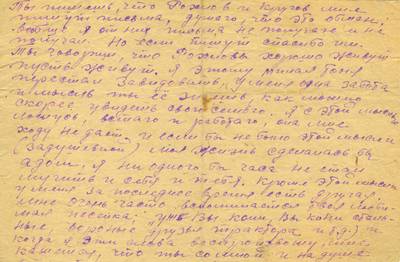 Ты пишешь, что Рохлов и Круглов мне
пишут письма, думаю, что это обман,
вобще я от них письма не получаю и не
получал. Но если пишут спасибо им.
Ты говоришь, что Роховы хорошо живут
пусть живут. Я этому милая Тоня
перестал завидовать. У меня одна забота
и мысль ты ее знаешь, как можно
скорее увидеть свою семью. Я с этой мыслью
ложусь, встаю и работаю, она мне
ходу не даст, и если бы не было этой мысли
(задушевной) моя жизнь сделалась бы
адом. Я ни одного бы часа не стал
мучить и себя и тебя. Кроме этой мысли
у меня за последнее время есть другая,
мне очень часто вспоминается твоя люби-
мая песенка: "уж вы кони, вы кони сталь-
ные, верные друзья трактора и т.д.) и
когда я эти слова воспроизвожу, мне
кажется, что ты со мной и на душе